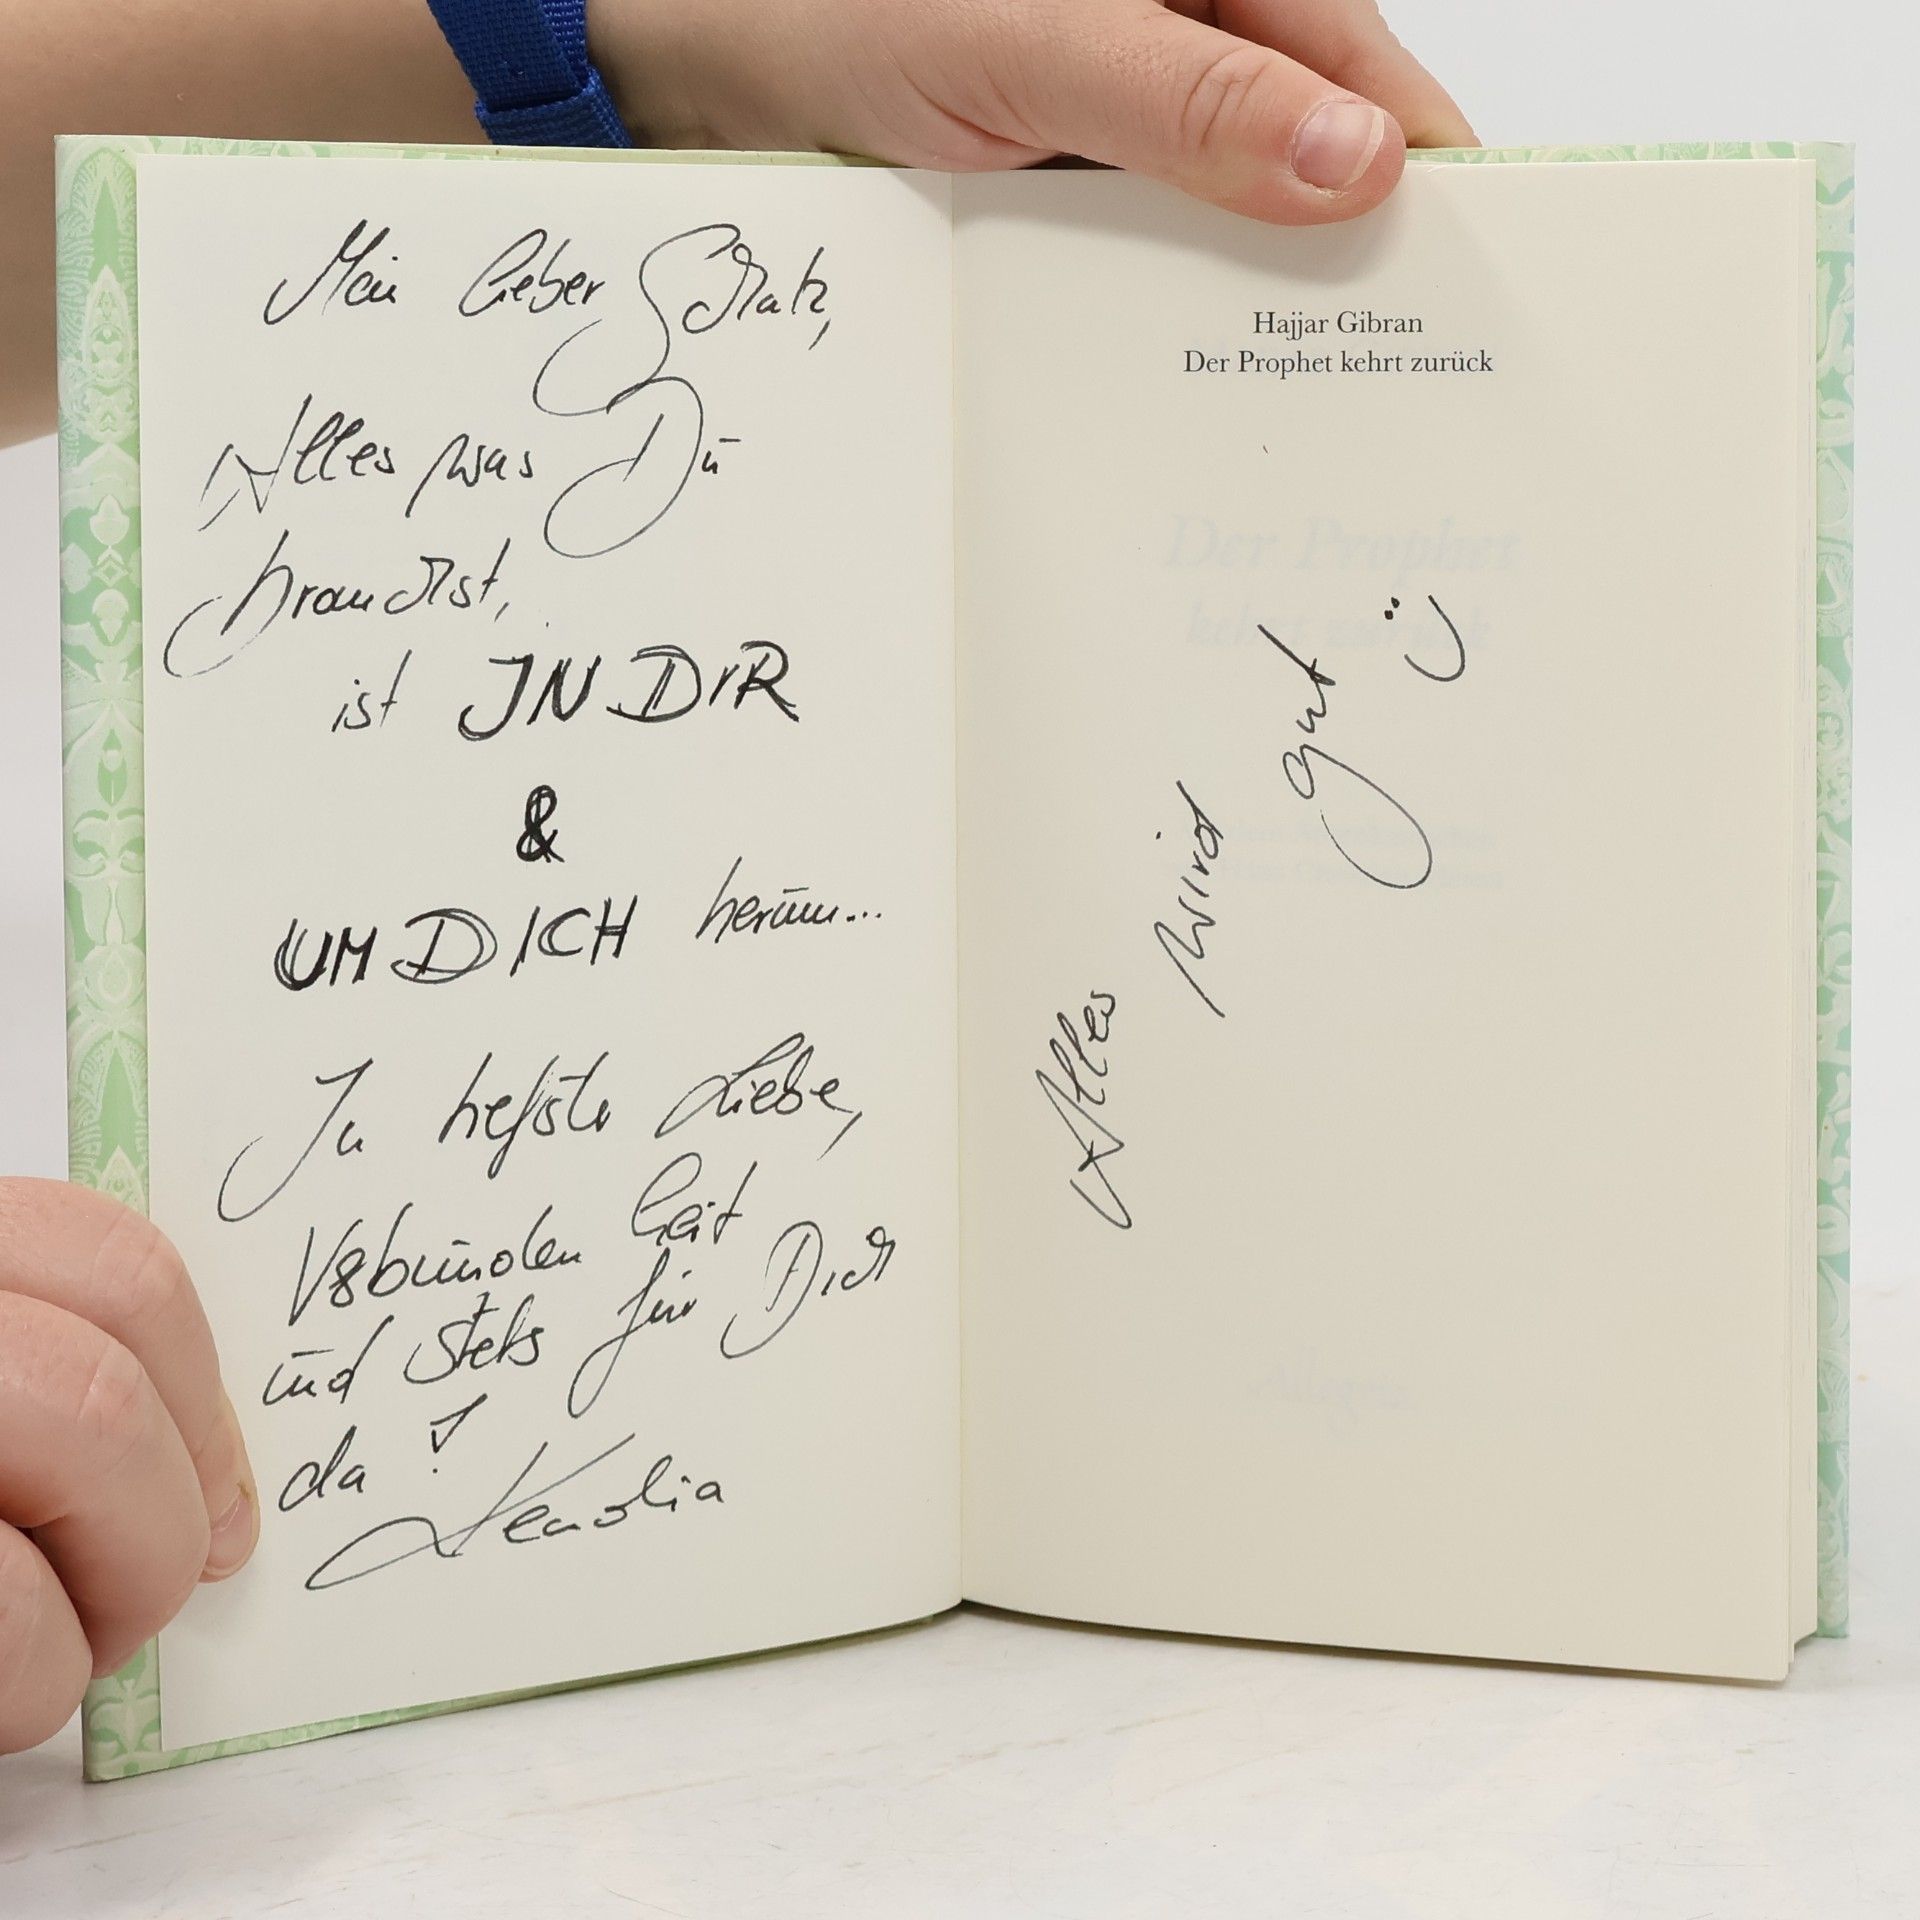 Mein lieber Schatz,
Alles was Du
brauchst,
ist IN DIR
&
UM DICH herum...
In tiefster Liebe,
Verbundenheit
und stets für Dich
da !
Hajjar Gibran
Der Prophet kehrt zurück
Der Prophet
kehrt zurück
Alles wird gut
Allegria